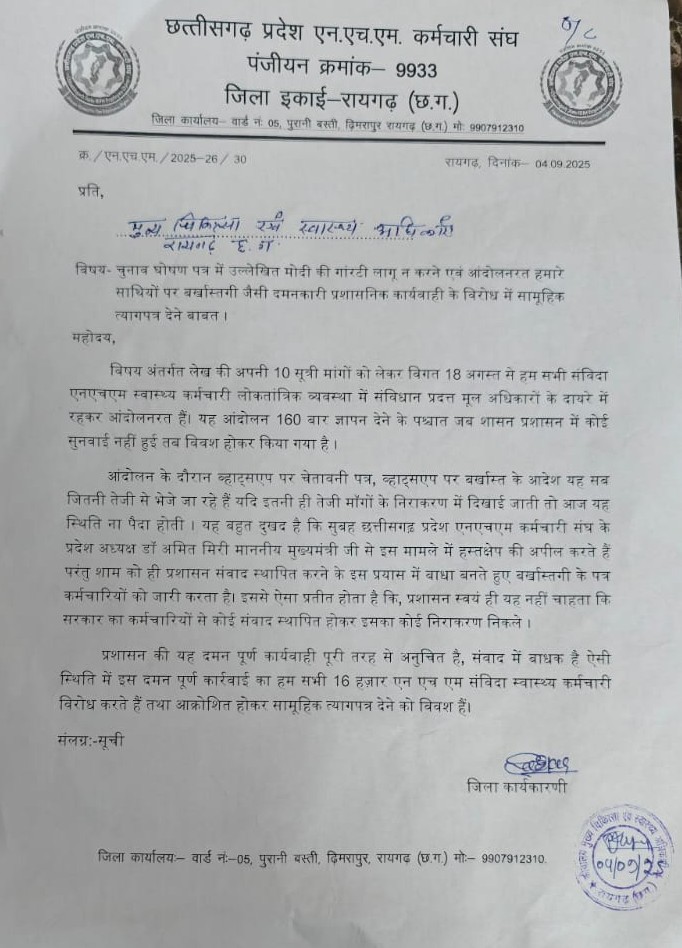 O/C
छत्तीसगढ़ प्रदेश एन.एच.एम. कर्मचारी संघ
पंजीयन क्रमांक– 9933
जिला इकाई–रायगढ़ (छ.ग.)
जिला कार्यालय– वार्ड नं: 05, पुरानी बस्ती, ढ़िमरापुर रायगढ़ (छ.ग.) मोः 9907912310
क्र./एन.एच.एम./2025–26/30 रायगढ़, दिनांक– 04.09.2025
प्रति,
मुख्य चिकित्सा एवं स्वास्थ्य अधिकारी
रायगढ़ छ.ग.
विषय- चुनाव घोषण पत्र में उल्लेखित मोदी की गांरटी लागू न करने एवं आंदोलनरत हमारे
साथियों पर बर्खास्तगी जैसी दमनकारी प्रशासनिक कार्यवाही के विरोध में सामूहिक
त्यागपत्र देने बाबत ।
महोदय,
विषय अंतर्गत लेख की अपनी 10 सूत्री मांगों को लेकर विगत 18 अगस्त से हम सभी संविदा
एनएचएम स्वास्थ्य कर्मचारी लोकतांत्रिक व्यवस्था में संविधान प्रदत्त मूल अधिकारों के दायरे में
रहकर आंदोलनरत हैं। यह आंदोलन 160 बार ज्ञापन देने के पश्चात जब शासन प्रशासन में कोई
सुनवाई नहीं हुई तब विवश होकर किया गया है ।
आंदोलन के दौरान व्हाट्सएप पर चेतावनी पत्र, व्हाट्सएप पर बर्खास्त के आदेश यह सब
जितनी तेजी से भेजे जा रहे हैं यदि इतनी ही तेजी माँगों के निराकरण में दिखाई जाती तो आज यह
स्थिति ना पैदा होती । यह बहुत दुखद है कि सुबह छत्तीसगढ़ प्रदेश एनएचएम कर्मचारी संघ के
प्रदेश अध्यक्ष डॉ अमित मिरी माननीय मुख्यमंत्री जी से इस मामले में हस्तक्षेप की अपील करते हैं
परंतु शाम को ही प्रशासन संवाद स्थापित करने के इस प्रयास में बाधा बनते हुए बर्खास्तगी के पत्र
कर्मचारियों को जारी करता है। इससे ऐसा प्रतीत होता है कि, प्रशासन स्वयं ही यह नहीं चाहता कि
सरकार का कर्मचारियों से कोई संवाद स्थापित होकर इसका कोई निराकरण निकले ।
प्रशासन की यह दमन पूर्ण कार्यवाही पूरी तरह से अनुचित है, संवाद में बाधक है ऐसी
स्थिति में इस दमन पूर्ण कार्रवाई का हम सभी 16 हज़ार एन एच एम संविदा स्वास्थ्य कर्मचारी
विरोध करते हैं तथा आक्रोशित होकर सामूहिक त्यागपत्र देने को विवश हैं।
संलग्र:-सूची
जिला कार्यकारणी
कार्यालय मुख्य चिकित्सा एवं स्वास्थ्य अधिकारी
04/09/25
रायगढ़ (छ.ग.)
जिला कार्यालयः– वार्ड नं:–05, पुरानी बस्ती, ढ़िमरापुर, रायगढ़ (छ.ग.) मोः– 9907912310.